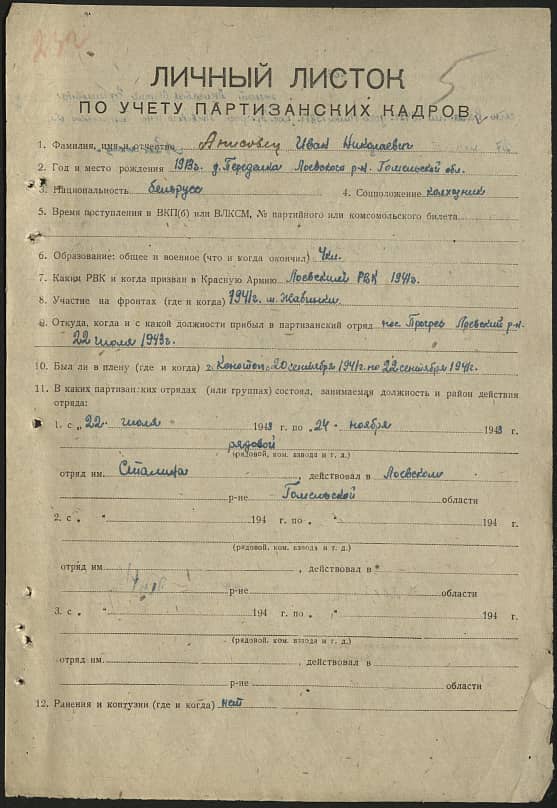 232
5
ЛИЧНЫЙ ЛИСТОК
ПО УЧЕТУ ПАРТИЗАНСКИХ КАДРОВ
1. Фамилия, имя и отчество Анисовец Иван Николаевич
2. Год и место рождения 1913г. д. Переделка Лоевского р-н. Гомельской обл.
3. Национальность белорусс 4. Соцположение колхозник
5. Время поступления в ВКП(б) или ВЛКСМ, № партийного или комсомольского билета
6. Образование: общее и военное (что и когда окончил) 4кл.
7. Каким РВК и когда призван в Красную Армию Лоевский РВК 1941г.
8. Участие на фронтах (где и когда) 1941г. м. Жабинки.
9. Откуда, когда и с какой должности прибыл в партизанский отряд пос. Прогрес Лоевский р-н.
22 июля 1943г.
10. Был ли в плену (где и когда) г. Конотоп. 20 сентября 1941г. по 22 сентября 1941г.
11. В каких партизанских отрядах (или группах) состоял, занимаемая должность и район действия
отряда:
1. с „ 22. июля 1943 г. по „ 24 " ноября 1943 г.
рядовой
(рядовой, ком. взвода и т. д.)
отряд им. Сталина , действовал в Лоевском
р-не Гомельской области
2. с „ " 194 г. по „ " 194 г.
(рядовой, ком. взвода и т. д.)
отряд им. , действовал в
р-не области
3. с „ " 194 г. по „ " 194 г.
(рядовой, ком. взвода и т. д.)
отряд им. , действовал в
р-не области
12. Ранения и контузии (где и когда) нет